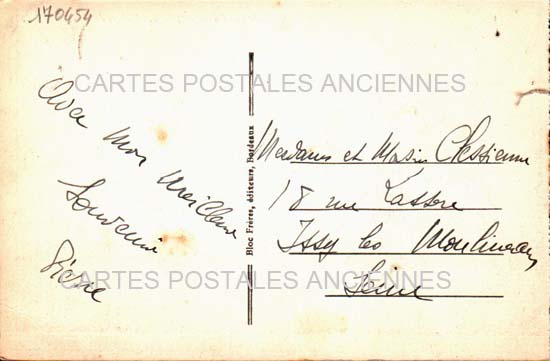 170454
CARTES POSTALES ANCIENNES
Avec
Mon
Meilleur
Souvenir
Pierre
Bloc Frères, éditeurs, Bordeaux
et
18 rue
Issy les Moulineaux
Seine
CARTES POSTALES ANCIENNES